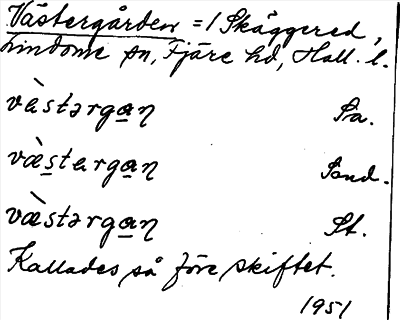 Västergården = 1 Skäggered,
Lindome sn, Fjäre hd, Hall. l.
vὰstərgan Sa.
væ̀stergan Sand.
væ̀stərgan St.
Kallades så före skiftet.
1951